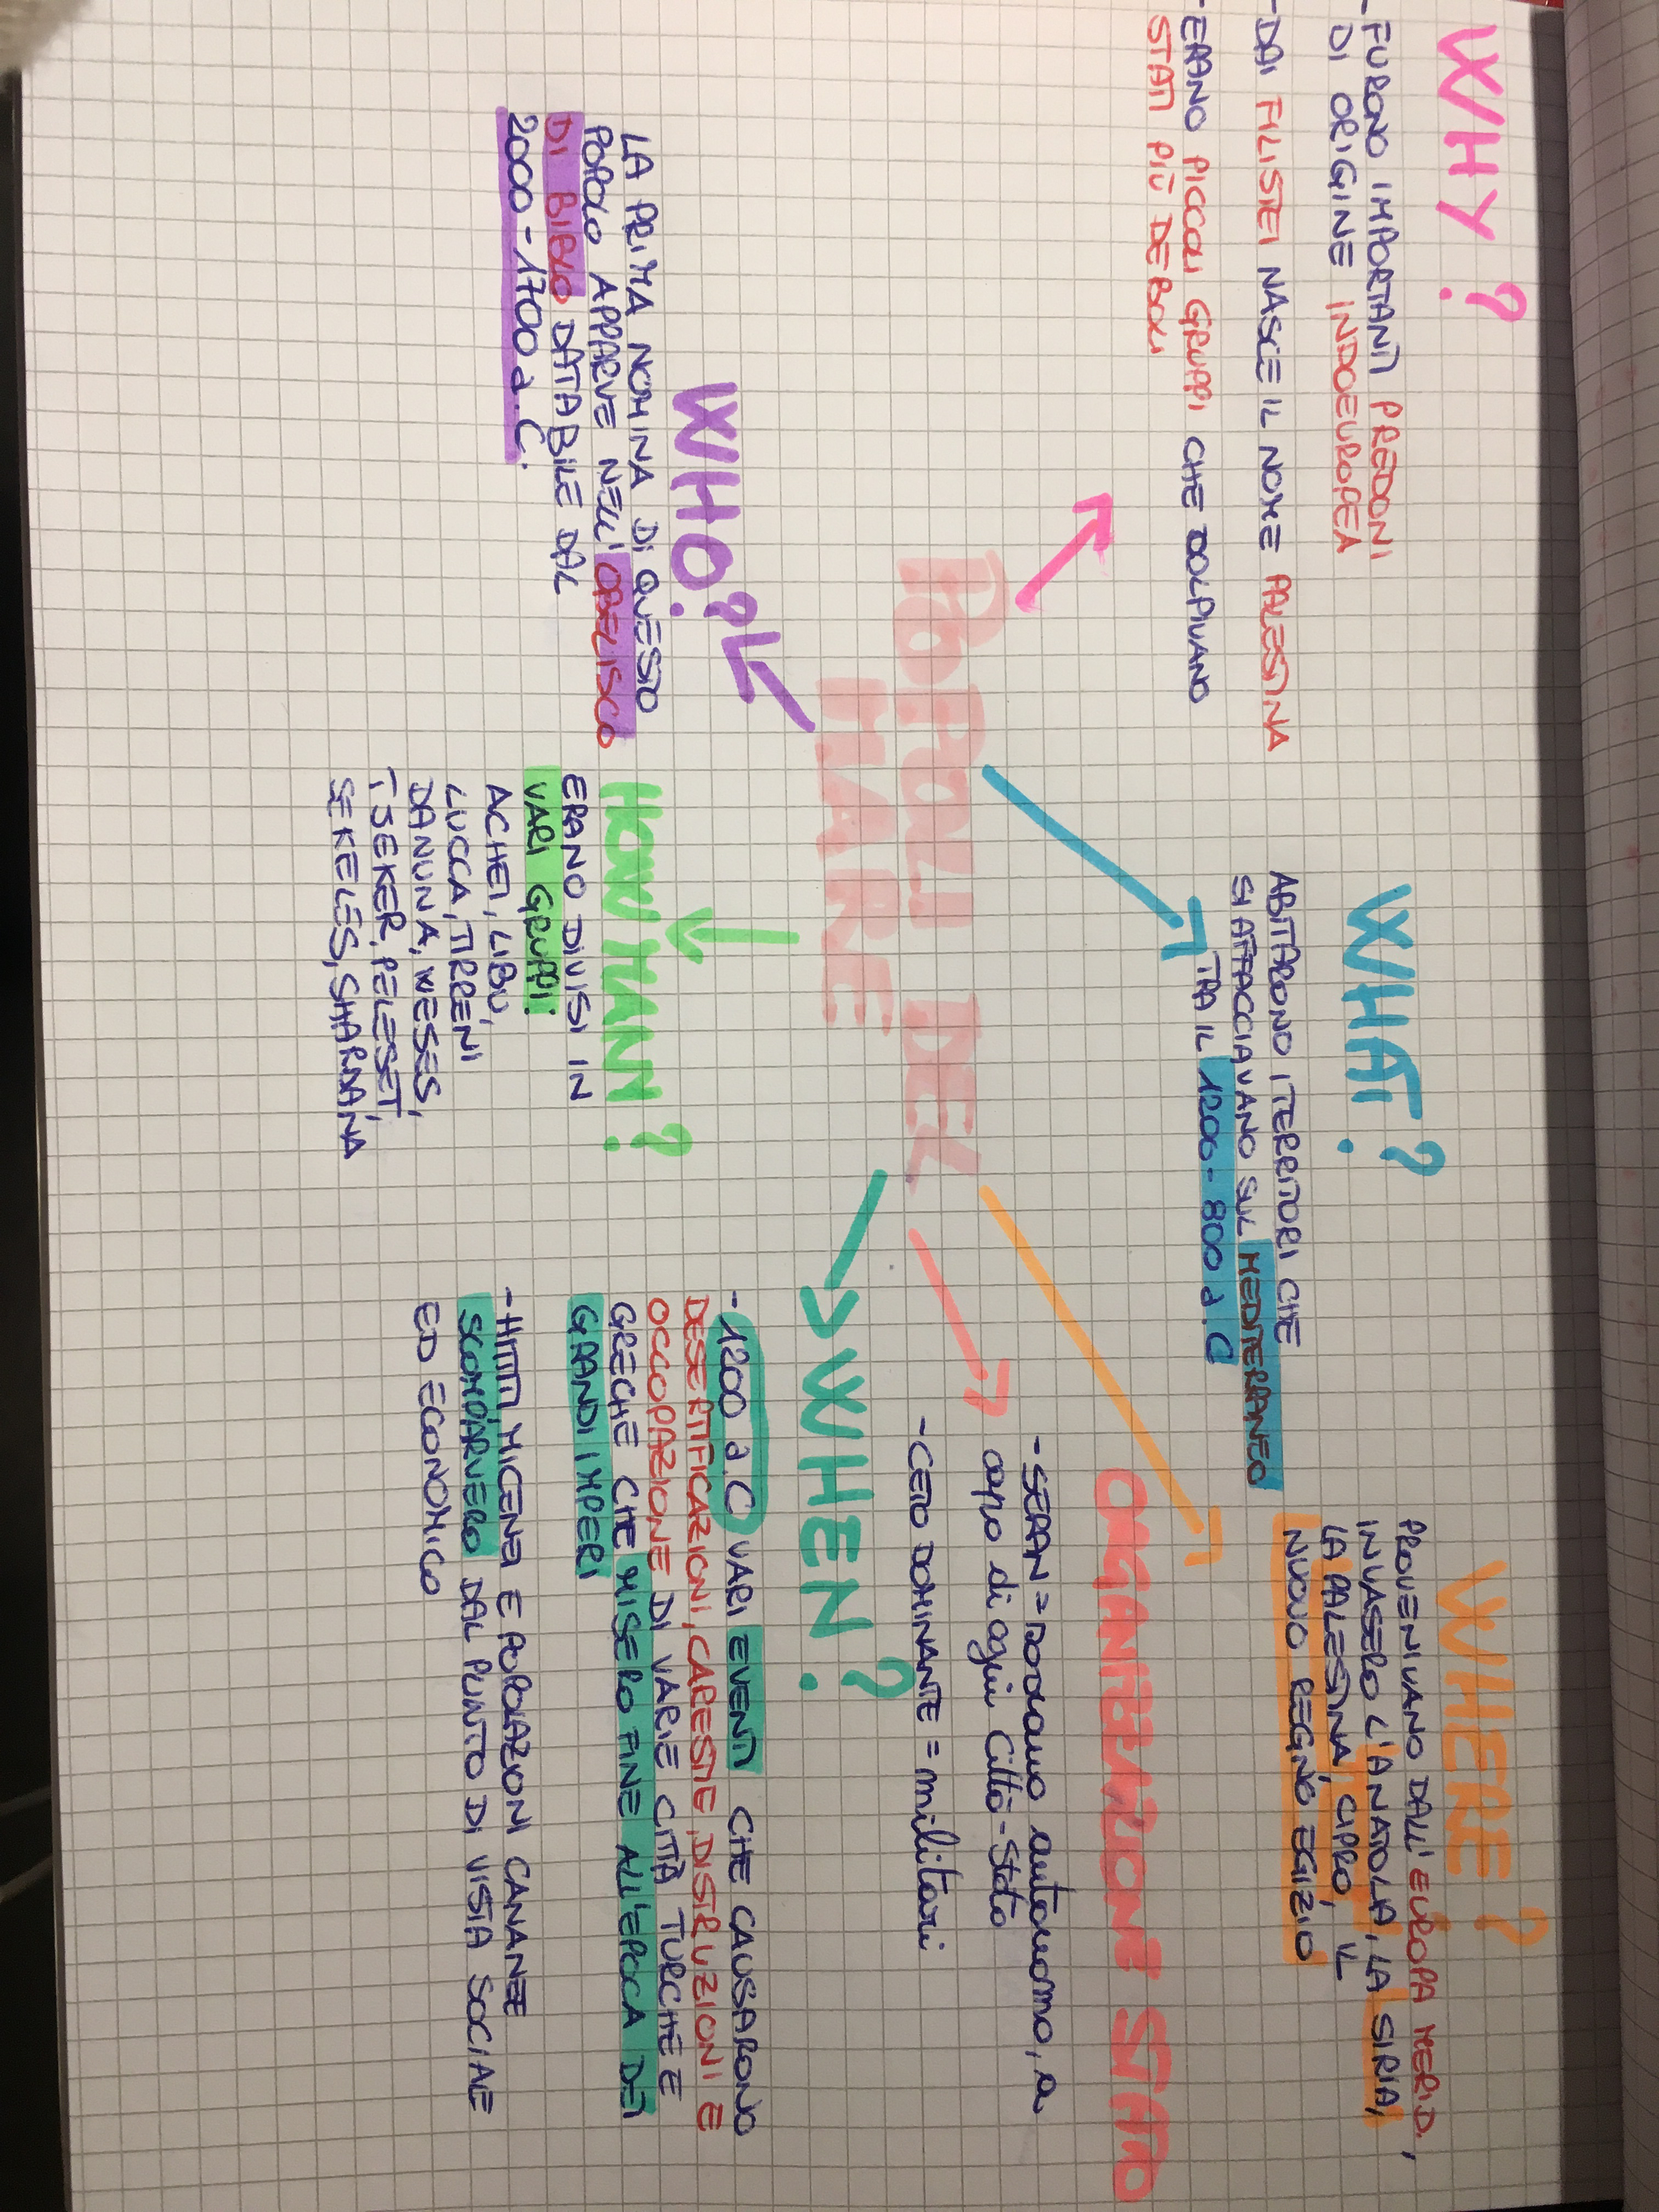 WHY?
- FURONO IMPORTANTI PREDONI
DI ORIGINE INDOEUROPEA
- DAI FILISTEI NASCE IL NOME PALESTINA
- ERANO PICCOLI GRUPPI CHE COLPIVANO
STATI PIÙ DEBOLI
WHAT?
ABITARONO I TERRITORI CHE
SI AFFACCIAVANO SUL MEDITERRANEO
TRA IL 1200-800 a.C
WHERE?
PROVENIVANO DALL'EUROPA MERID.,
INVASERO L'ANATOLA, LA SIRIA,
LA PALESTINA, CIPRO, IL
NUOVO REGNO EGIZIO
POPOLI DEL
MARE
ORGANIZZAZIONE STATO
- SERAN = sovrano autonomo, a
capo di ogni città-stato
- CETO DOMINANTE = militari
WHO?
LA PRIMA NOMINA DI QUESTO
POPOLO APPARVE NELL'OBELISCO
DI BIBLO DATABILE DAL
2000-1700 a.C.
HOW MANY?
ERANO DIVISI IN
VARI GRUPPI:
ACHEI, LIBU,
LUCCA, TIRRENI
DANUNA, WESES,
TJEKER, PELESET,
SEKELES, SHARDANA
WHEN?
- 1200 a.C VARI EVENTI CHE CAUSARONO
DESERTIFICAZIONI, CARESTIE, DISTRUZIONI E
OCCUPAZIONE DI VARIE CITTÀ TURCHE E
GRECHE CHE MISERO FINE ALL'EPOCA DEI
GRANDI IMPERI
- HITTITI MICENEI E POPOLAZIONI CANANEE
SCOMPARVERO DAL PUNTO DI VISTA SOCIALE
ED ECONOMICO